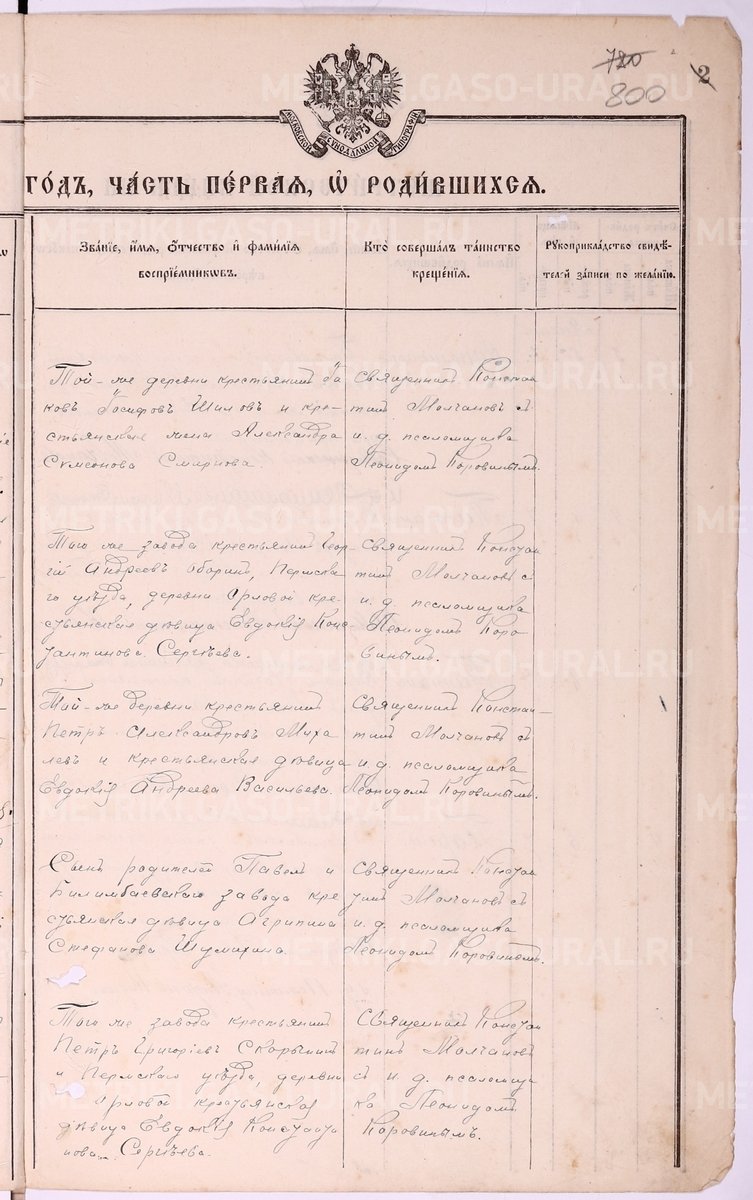 720
800
2
МОСКОВСКОЙ СѴНОДАЛЬНОЙ ТИПОГРАФІИ
ГОДЪ, ЧАСТЬ ПЕРВАЯ, Ѡ РОДИВШИХСЯ.
Званіе, имя, отчество и фамилія
воспріемниковъ.
Кто совершалъ таинство
крещенія.
Рукоприкладство свидѣ-
телей записи по желанію.
Той-же деревни крестьянинъ Яковъ
Іосифовъ Шиловъ и кре-
стьянская жена Александра
Симеонова Смирнова.
Священникъ Констан
тинъ Молчановъ съ
и. д. псаломщика
Леонидомъ Коровинымъ.
Того же завода крестьянинъ Геор-
гій Андреевъ Оборинъ, Пермска
го уѣзда, деревни Орловой кре-
стьянская дѣвица Евдокія Конс-
тантинова Сергѣева.
Священникъ Констан
тинъ Молчановъ съ
и. д. псаломщика
Леонидомъ Коро
винымъ.
Той-же деревни крестьянинъ
Петръ Александровъ Миха
левъ и крестьянская дѣвица
Евдокія Андреева Васильева.
Священникъ Констан-
тинъ Молчановъ съ
и. д. псаломщика
Леонидомъ Коровинымъ.
Сынъ родителей Павелъ и
Билимбаевскаго завода кре
стьянская дѣвица Агрипина
Стефанова Шумихина.
Священникъ Констан
тинъ Молчановъ съ
и. д. псаломщика
Леонидомъ Коровинымъ.
Того же завода крестьянинъ
Петръ Григоріевъ Скорынинъ
и Пермскаго уѣзда, деревни
Орловой крестьянская
дѣвица Евдокія Константи
нова Сергѣева.
Священникъ Констан
тинъ Молчановъ
съ и. д. псаломщи
ка Леонидомъ
Коровинымъ.
METRIKI.GASO-URAL.RU